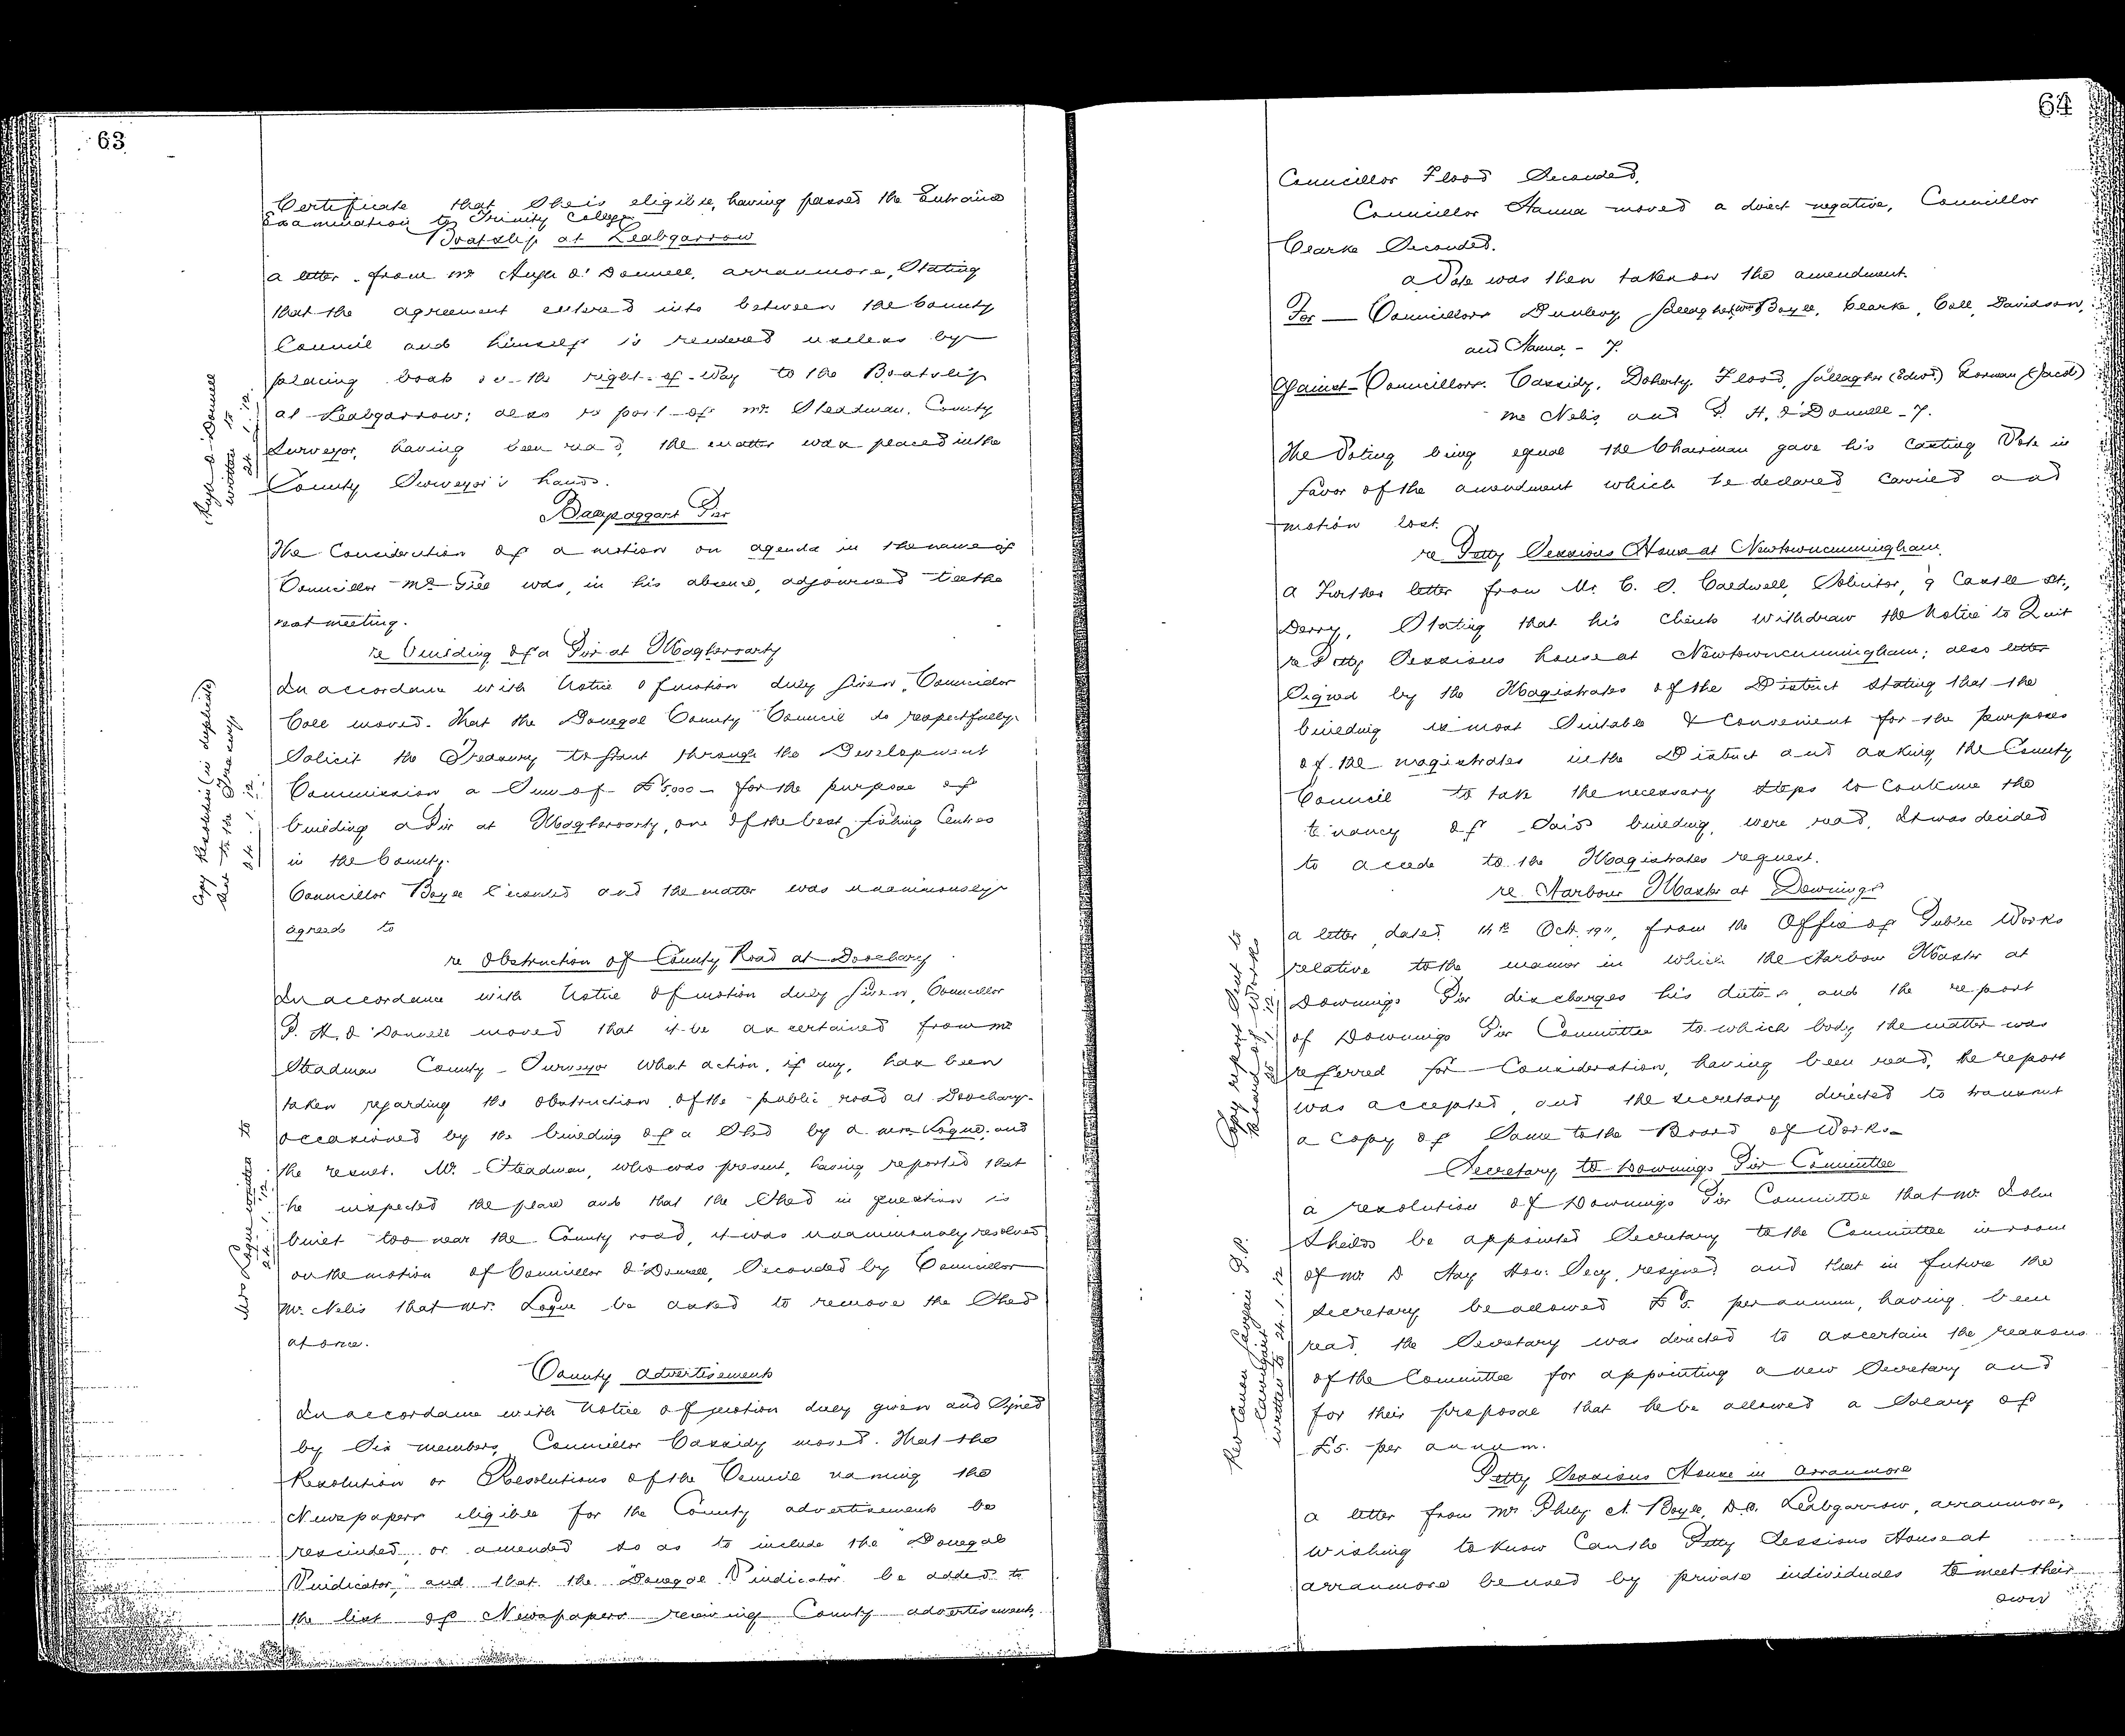 63
Certificate that She is eligible, having passed the Entrance
Examination to Trinity College
Boatslip at Leabgarrow
a letter from Mr Hugh O'Donnell, Arranmore, Stating
that the agreement entered into between the County
Council and himself is rendered useless by
placing boats on the right-of-Way to the Boatslip
at Leabgarrow; also report of Mr. Steadman, County
Surveyor, having been read, the matter was placed in the
County Surveyor's hands.
Hugh O'Donnell
written to
24.1.12.
Pier
The Consideration of a motion on agenda in the name of
Councillor McGill was, in his absence, adjourned till the
next meeting.
re building of a Pier at Magheroarty
In accordance with Notice of motion duly given, Councillor
Coll moved. That the Donegal County Council do respectfully
Solicit the Treasury to Grant through the Development
Commission a Sum of £5,000 for the purpose of
building a Pier at Magheroarty, one of the best fishing Centres
in the County.
Councillor Boyle Seconded and the matter was unanimously
agreed to
Copy Resolution (in duplicate)
sent to the Treasury
24.1.12.
re Obstruction of County Road at Doochary
In accordance with Notice of motion duly given, Councillor
P. H. O'Donnell moved that it be ascertained from Mr
Steadman County Surveyor what action, if any, has been
taken regarding the obstruction of the public road at Doochary
occasioned by the building of a Shed by a Mrs Logue, and
the result. Mr. Steadman, who was present, having reported that
he inspected the place and that the Shed in question is
built too near the County road, it was unanimously resolved
on the motion of Councillor O'Donnell, Seconded by Councillor
McNelis that Mrs. Logue be asked to remove the Shed
at once.
Mrs Logue written to
24.1.12.
County Advertisements
In accordance with Notice of motion duly given and Signed
by Six members, Councillor Cassidy moved. That the
Resolution or Resolutions of the Council naming the
Newspapers eligible for the County advertisements be
rescinded, or amended so as to include the "Donegal
Vindicator," and that the "Donegal Vindicator" be added to
the list of Newspapers receiving County advertisements.
64
Councillor Flood Seconded.
Councillor Hanna moved a direct negative, Councillor
Clarke Seconded.
a Vote was then taken on the amendment.
For — Councillors Dunlevy, Gallagher (Wm) Boyle, Clarke, Coll, Davidson,
and Hanna, - 7.
Against - Councillors. Cassidy, Doherty, Flood, Gallagher (Edwd.) Gorman (Jacob)
McNelis, and P. H. O'Donnell - 7.
The Voting being equal the Chairman gave his Casting Vote in
favor of the amendment which he declared carried and
motion lost.
re Petty Sessions House at Newtowncunningham.
A Further letter from Mr. C. S. Caldwell, Solicitor, 9 Castle St.,
Derry, Stating that his Clients withdraw the Notice to Quit
re Petty Sessions house at Newtowncunningham; also letter
Signed by the Magistrates of the District Stating that the
building is most Suitable & Convenient for the purposes
of the magistrates in the District and asking the County
Council to take the necessary steps to continue the
tenancy of Said building, were read, It was decided
to accede to the Magistrates request.
re Harbour Master at Downings
a letter, dated 14th Oct. 1911, from the Office of Public Works
relative to the manner in which the Harbour Master at
Downings Pier discharges his duties, and the report
of Downings Pier Committee to which body the matter was
referred for Consideration, having been read, the report
was accepted, and the secretary directed to transmit
a copy of Same to the Board of Works.
Copy report Sent to
Board of Works
25.1.12.
Secretary to Downings Pier Committee
a resolution of Downings Pier Committee that Mr. John
Sheils be appointed Secretary to the Committee in room
of Mr D Hay Hon. Secy, resigned and that in future the
secretary be allowed £5. per annum, having been
read, the Secretary was directed to ascertain the reasons
of the Committee for appointing a new Secretary and
for their proposal that he be allowed a Salary of
£5. per annum.
Rev Canon Gavigan P.P.
Carrigart
written to 24.1.12
Petty Sessions House in Arranmore
a letter from Mr Philip A. Boyle, D.C. Leabgarrow, Arranmore,
wishing to know Can the Petty Sessions House at
Arranmore be used by private individuals to meet their
own